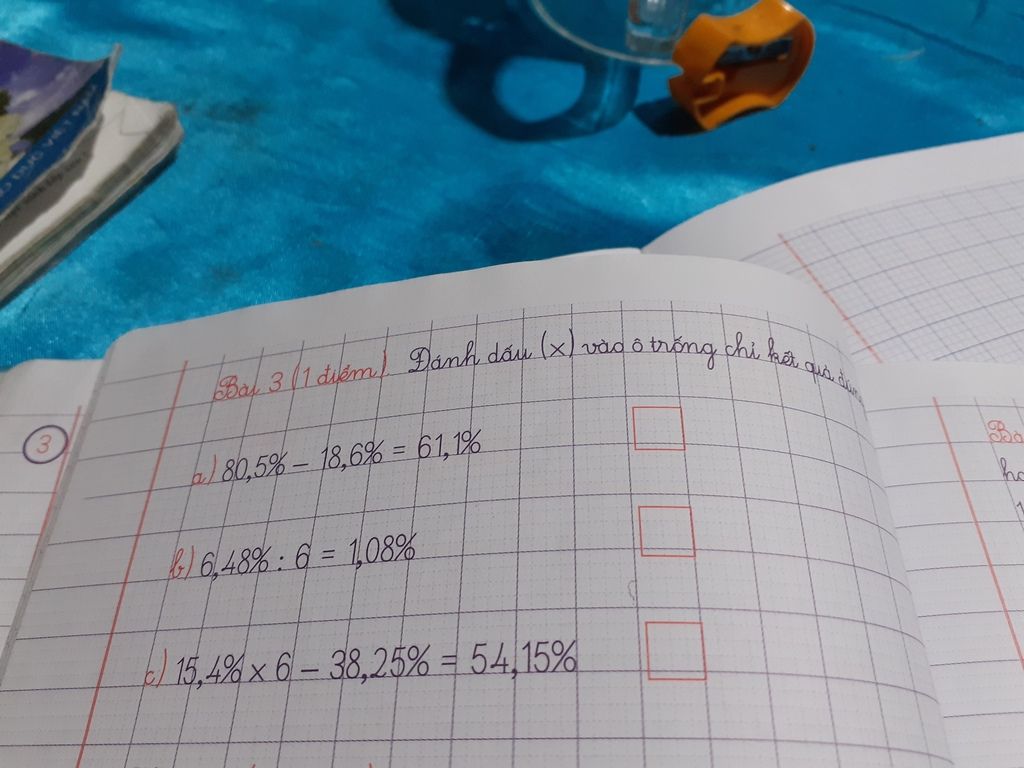 Bài 3 (1 điểm) Đánh dấu (x) vào ô trống chỉ kết quả
a) 80,5% – 18,6% = 61,1%
b) 6,48% : 6 = 1,08%
c) 15,4% x 6 – 38,25% = 54,15%
3